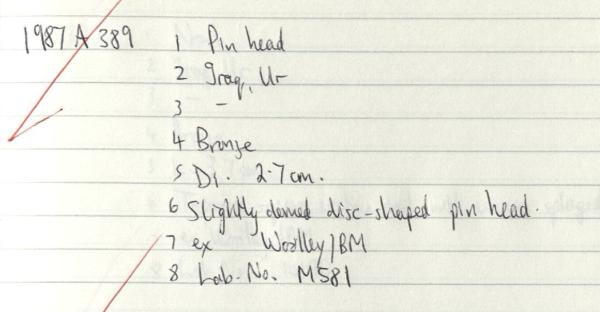 1987 A 389 1 Pin head
2 Iraq, Ur
3 -
4 Bronze
5 Di. 2.7cm.
6 Slightly domed disc-shaped pin head.
7 ex Woolley/BM
8 Lab. No. M581